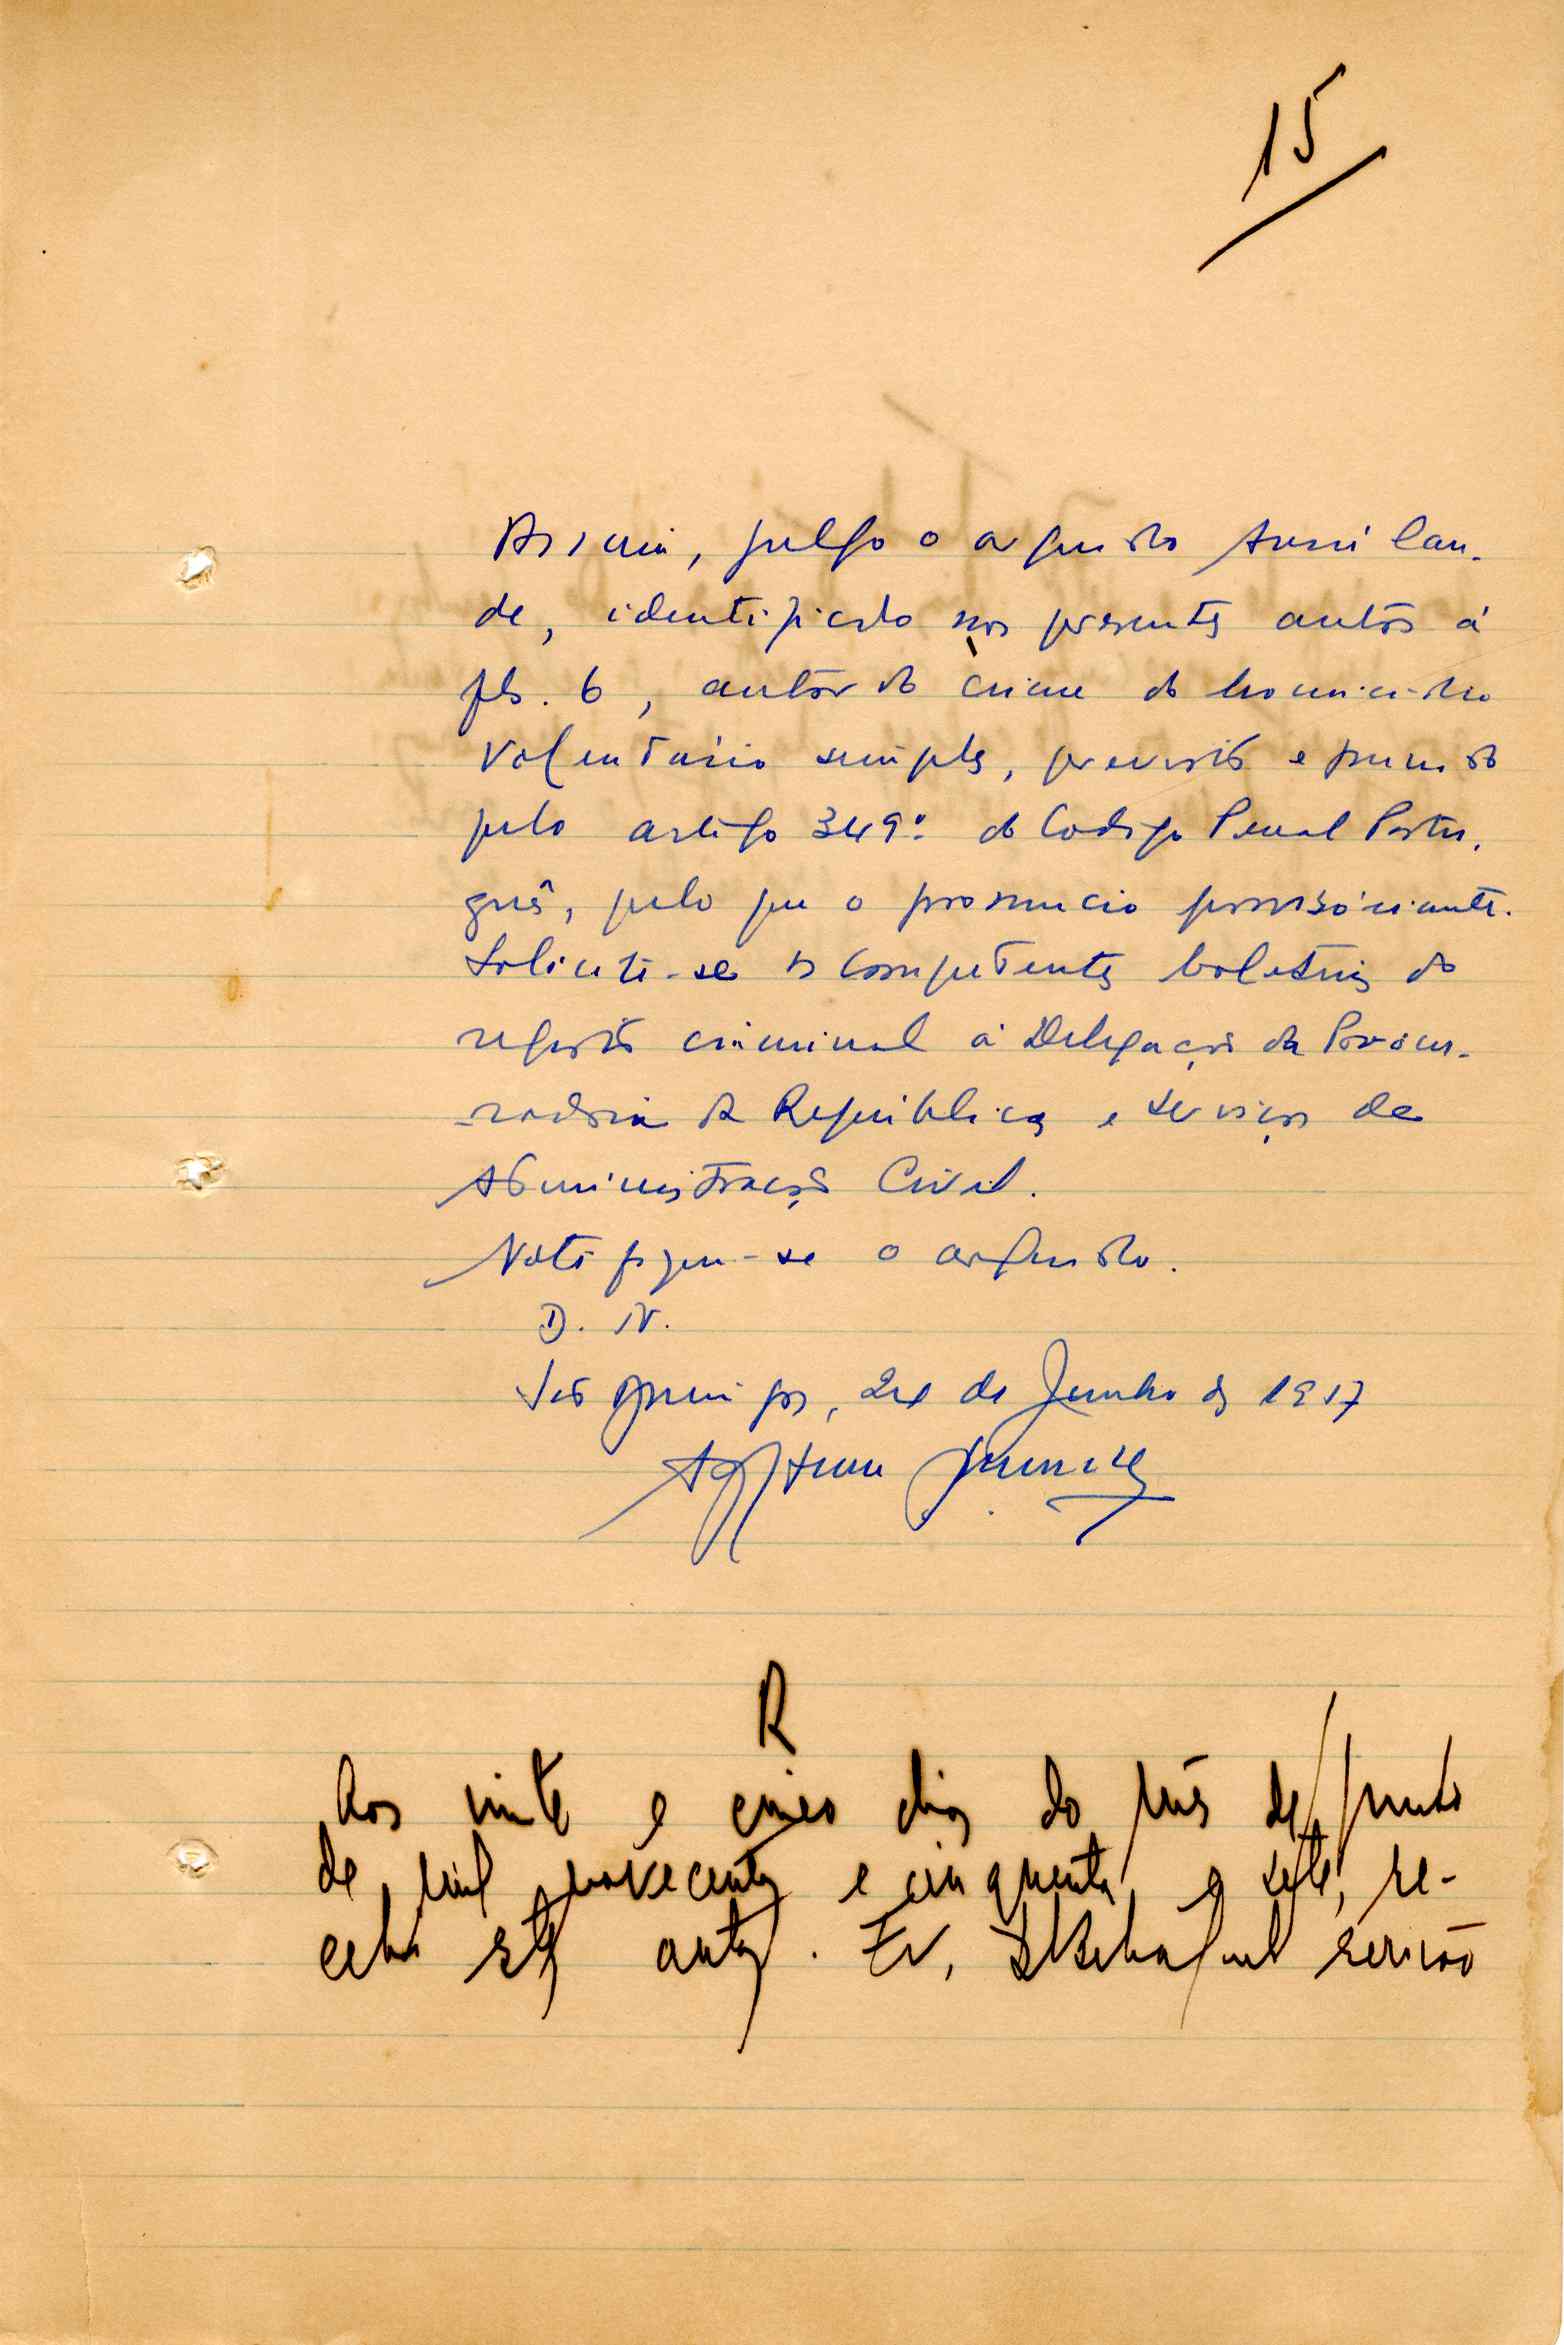 15
Assim, julgo o arguido
de, identificado nos presentes autos á
fls. 6, autor do crime de homicidio
voluntário simples, previsto e punido
pelo artigo 349º do Codigo Penal Portu-
guês, pelo que o pronuncio provisóriamente.
Solicite-se os competentes boletins do
registo criminal á Delegação da Procu-
radoria da República e serviços de
Administração Civil.
Notifique-se o arguido.
D. N.
24 de Junho de 1957
R
Aos vinte e cinco dias do mês de Junho
de mil novecentos e cinquenta e sete, re-
cebi estes autos. Eu, escrivão